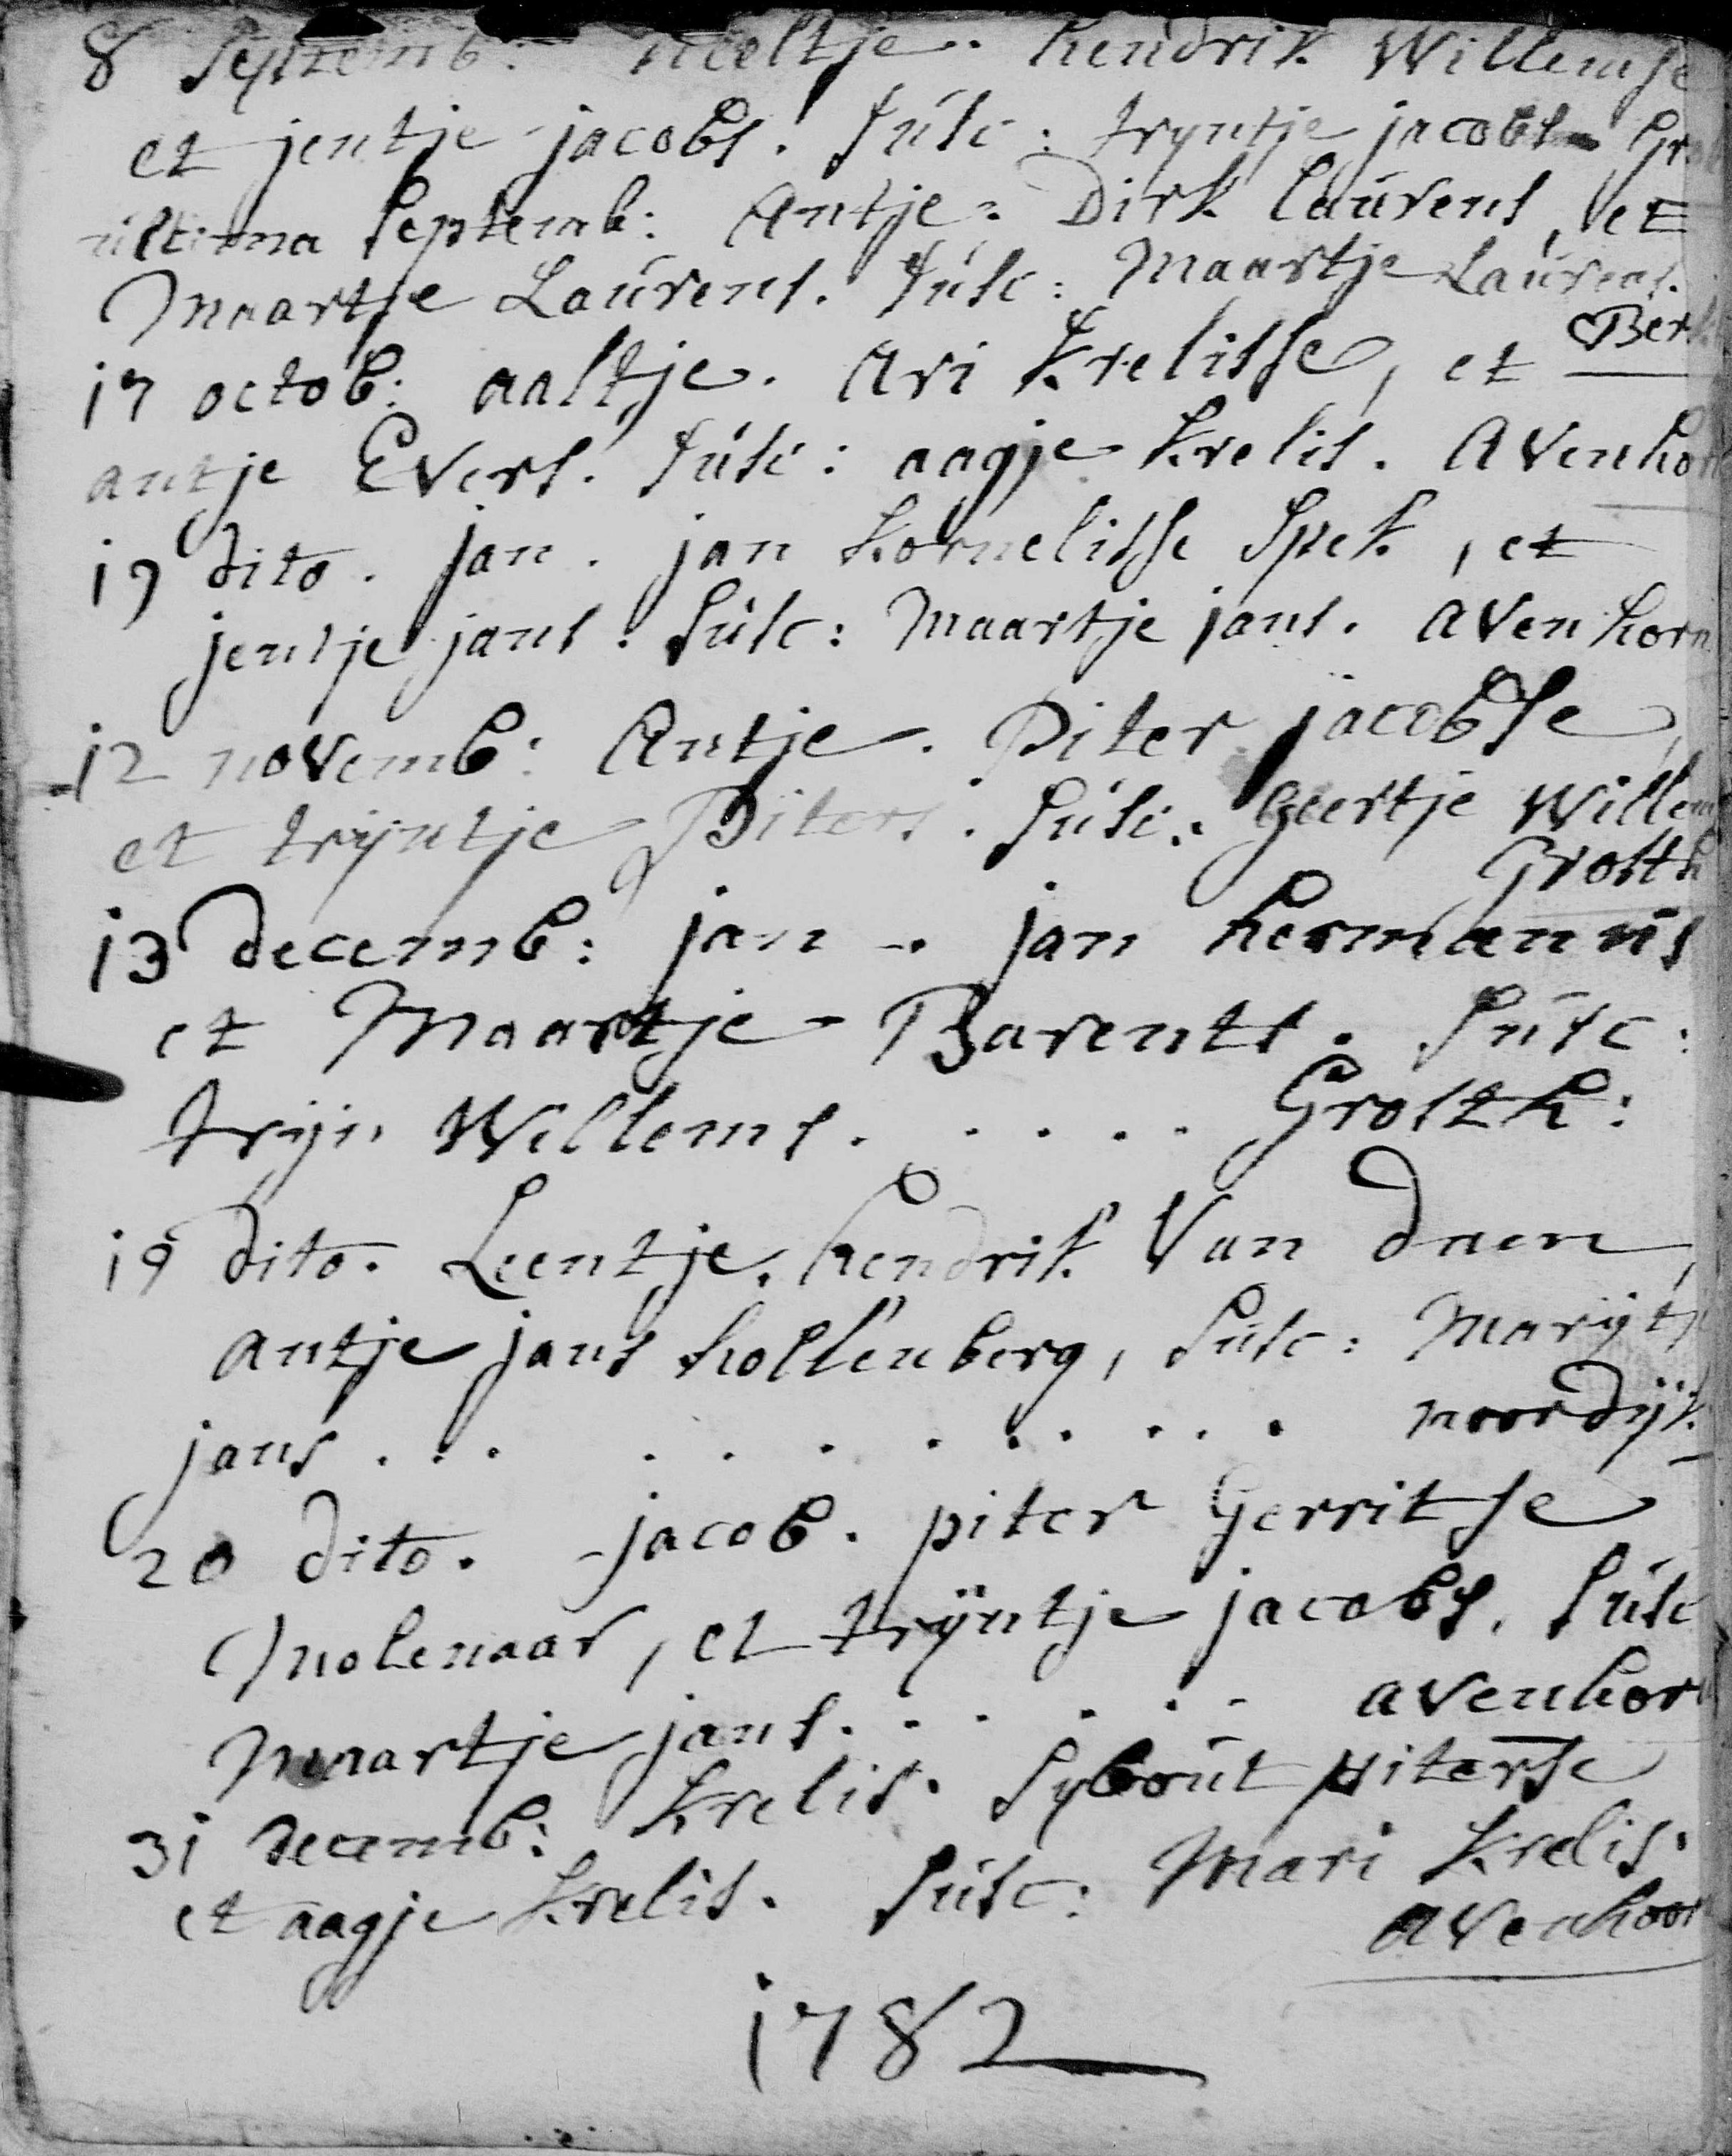 8 Septemb: neeltje. hendrik Willemse
et jentje jacobs. Susc: tryntje jacobs Gr
ultima Septemb: Antje: Dirk Laurens, et
Maartje Laurens. Susc: Maartje Laurens.
Ber
17 octob: aaltje. Ari Krelisse, et
antje Evers. Susc: aagje Krelis. Avenhor
19 dito. jan. jan Kornelisse Spek, et
jentje jans. Susc: Maartje jans. Avenhorn
12 novemb: Antje. Piter jacobse,
et tryntje Piters. Susc: Geertje Willem
Grotth
13 decemb: jan. jan hermanus
et Maartje Barents. Susc:
tryn Willems. . . . . Grotth:
19 dito. Leentje. hendrik Van daem,
antje jans hollenberg, Susc: Marytj
jans . . . . . . . . . . . noordyk
20 dito. jacob. piter Gerritse
Molenaar, et tryntje jacobs. Susc
Maartje jans. . . . . . avenhorn
31 decemb: Krelis. Sybout piterse
et aagje Krelis. Susc: Mari Krelis.
avenhoor
1782